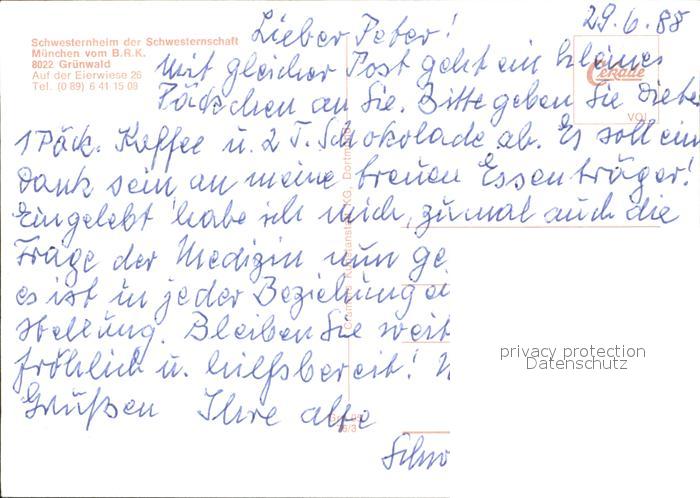 Schwesternheim der Schwesternschaft
München vom B.R.K.
8022 Grünwald
Auf der Eierwiese 26
Tel. (0 89) 6 41 15 08
29.6.88
Lieber Peter!
Mit gleicher Post geht ein kleines
Päckchen an Sie. Bitte geben Sie
1 Päck. Kaffee u. 2 T. Schokolade ab. Es soll ein
Dank sein an meine treuen Essenträger!
Eingelebt habe ich mich, zumal auch die
Frage der Medizin nun ge
es ist in jeder Beziehung
stellung. Bleiben Sie weit
fröhlich u. hilfsbereit!
Grüßen Ihre alte
Schw
Cekade
privacy protection
Datenschutz